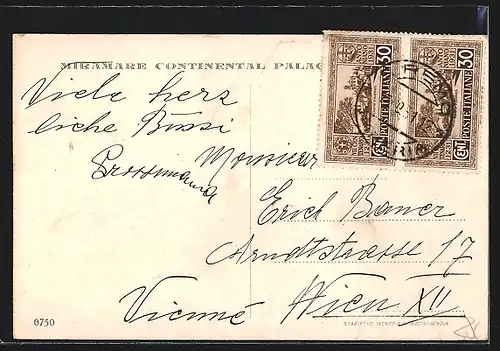 MIRAMARE CONTINENTAL PALAC
Viele herz
liche Bussi
Grossmama
Monsieur
Erich Bauer
Arndtstrasse 17
Vienne Wien XII
6750
30
CENT.
POSTE ITALIANE
30
CENT.
POSTE ITALIANE